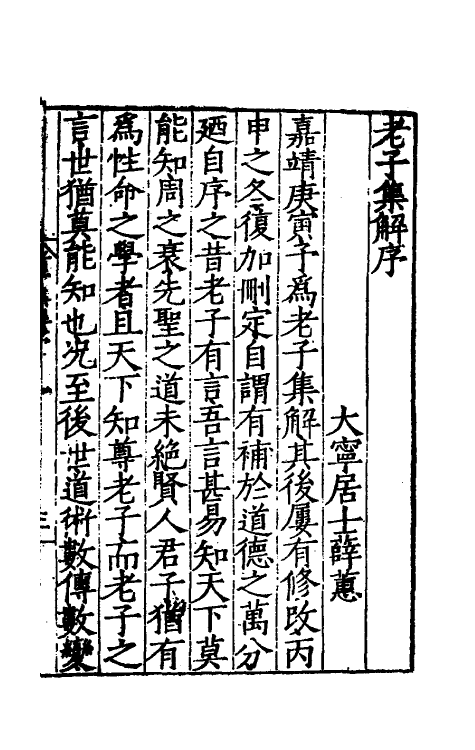 老子集解序
大寧居士薛蕙
嘉靖庚寅予為老子集解其後屢有修改丙
申之冬復加刪定自謂有補於道德之萬分
廼自序之昔老子有言吾言甚易知天下莫
能知周之衰先聖之道未絕賢人君子猶有
為性命之學者且天下知尊老子而老子之
言世猶莫能知也况至後世道術數傳數變